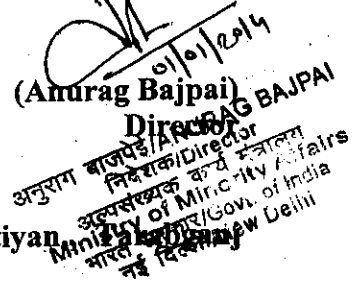 01/01/2014
(Anurag Bajpai)
Director
अनुराग बाजपेई/ANURAG BAJPAI
निदेशक/Director
अल्पसंख्यक कार्य मंत्रालय
Ministry of Minority Affairs
भारत सरकार/Govt. of India
नई दिल्ली/New Delhi
tiyan, Parabganj